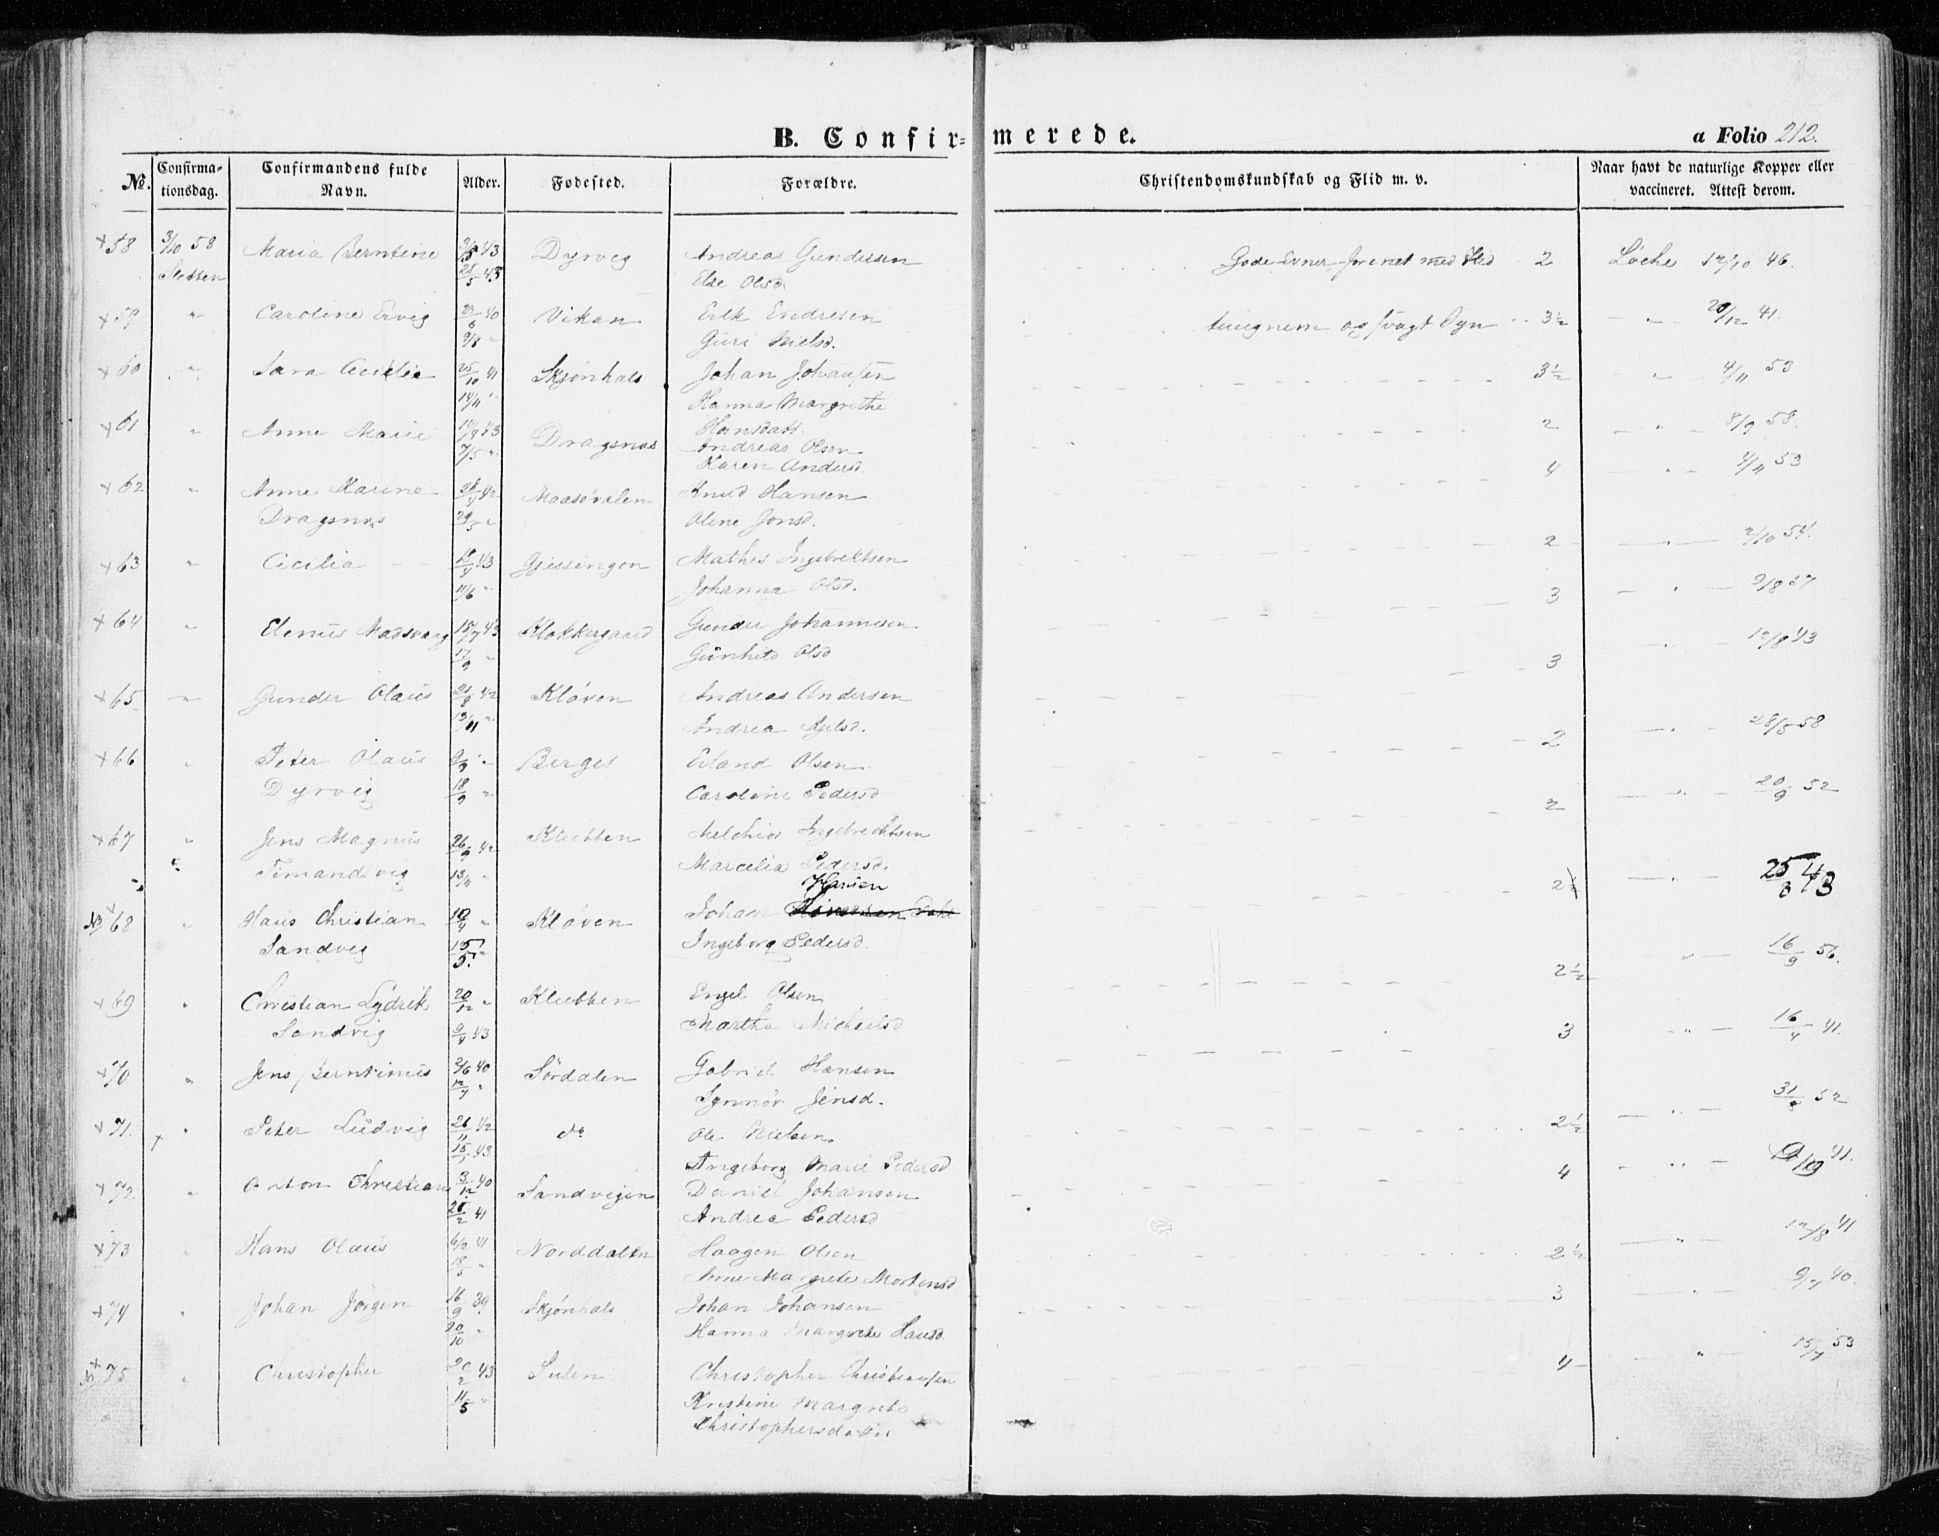 B. Confirmerede.
a Folio 212.
No. Confirmationsdag. Confirmandens fulde Navn. Alder. Fødested. Forældre. Christendomskundskab og Flid m. v. Naar havt de naturlige Kopper eller vaccineret. Attest derom.
+58 3/10 58 Maria Berntine 43 Dyrvig Andreas Gundersen Gode Evner, forenet med Flid 2 Løche 12/10 46.
25/5 43 Else Olsd.
+59 " Caroline Ervig 40 Vikan Erik Endresen tungnem og svagt Syn 3½ " 20/12 41.
9/8 " Guri Nielsd.
+60 " Sara Cecilie 25/10 41 Skjønhals Johan Johansen 3½ " 4/11 53
14/11 " Hanna Margrethe
Hansdatt.
+61 " Anne Marie 43 Dragsnæs Andreas Olsen 2 " 8/9 58.
7/5 " Karen Andersd.
+62 " Anne Marine 42 Maasøvalen Knud Hansen 4 " 4/11 53
Dragsnæs 29/5 " Oline Jonsd.
+63 " Cecilia 43 Gjessingen Mathis Ingebrektsen 2 " 2/10 54.
11/6 " Johanna Olsd.
+64 " Elenus Madsvaag 18/7 43 Klokkergaard Gunder Johannesen 3 " 9/8 57
17/9 " Gunhild Olsd
+65 " Gunder Olaus 42 Kløven Andreas Andersen 3 " 12/8 43
13/11 " Andrea
+66 " Peter Olaus 9/9 " Berget Erland Olsen 2 " 28/5 58
Dyrvig 18/9 " Caroline Pedersd
+67 " Jens Magnus 26/9 42 Klubben Melchior Ingebrechtsen 2 " 20/9 52
13/11 " Marcelia Pedersd.
Hansen
+68 " Hans Christian 10/4 " Kløven Johan 2½ " 25/8 43
Sandvig 15/5 " Ingeborg Pedersd.
+69 " Christian Lydrik 20/12 " Klubben Engel Olsen 2½ " 16/9 56.
Sandvig 9/4 43 Martha Michaelsd
+70 " Jens Berntinus 2/6 40 Sørdalen Gabriel Hansen 3 " 16/4 41.
12/7 " Synnøv Jensd.
+71. " Peter Ludvig 26/11 42 do Ole Nielsen 2½ " 52
43 Ingeborg Marie Pedersd
+72. " Anton Christian 3/12 40 Sandvigen Daniel Johansen 4 " 41.
41 Andrea Pedersd
+73 " Hans Olaus 6/2 41 Norddalen Haagen Olsen 2½ " 12/8 41
18/5 " Anne Margrete Mortensd
+74 " Johan Jørgen 16/9 39 Skjønhals Johan Johansen 3 " 9/7 40.
20/10 " Hanna Margrete Hansd.
+75 " Christopher 20/2 43 Sulen Christopher Christiansen 4 " 15/7 53
11/5 " Kristine Margrete
Christophersdatter